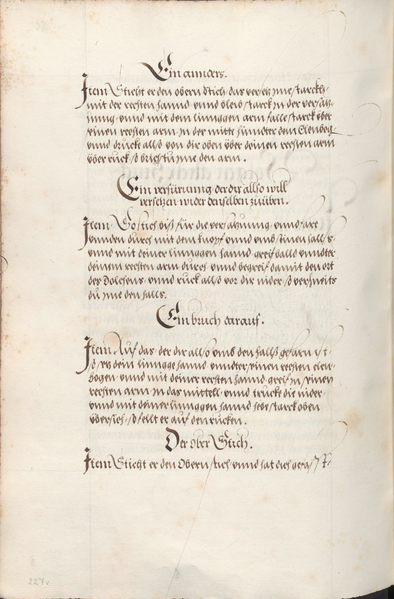 Ein annders.
Item Sticht er den obern stich das versetz Ime starckh
mit der rechten hannd vnnd bleib starck in der versatz-
ung vnnd mit dem linnggen arm falle starck vber
seinen rechten arm in der mitte hinnder dem Elenbog
vnnd druckh allso von dir oben vber deinen rechten arm
vber ruck so brichstu Ime den arm.
Ein verfürung der dir allso will
versetzen wider denselben zuüben.
Item So stich für die versatzung vnnd far
vnnden durch mit dem knopf vnnd vmb seinen hallß
vnnd mit deiner linnggen hannd greif balld vnnder
deinem rechten arm durch vnnd begreif damit den ort
des Dolchens vnnd ruck allso vor dir nider so
du Ime den hallß.
Ein bruch darauf.
Item Auf das der dir allso vmb den hallß gefarn ist
so setz dein linngge hannd vnnder seinen rechten elen-
bogen vnnd mit deiner rechten hannd greif in seinen
rechten arm in das mittell vnnd trucke die nider
vnnd mit deiner linnggen hannd heb starck oben
vbersich so fellt er auf den rucken.
Der ober Stich.
Item Sticht er den Obern stich vnnd hat dich
227v